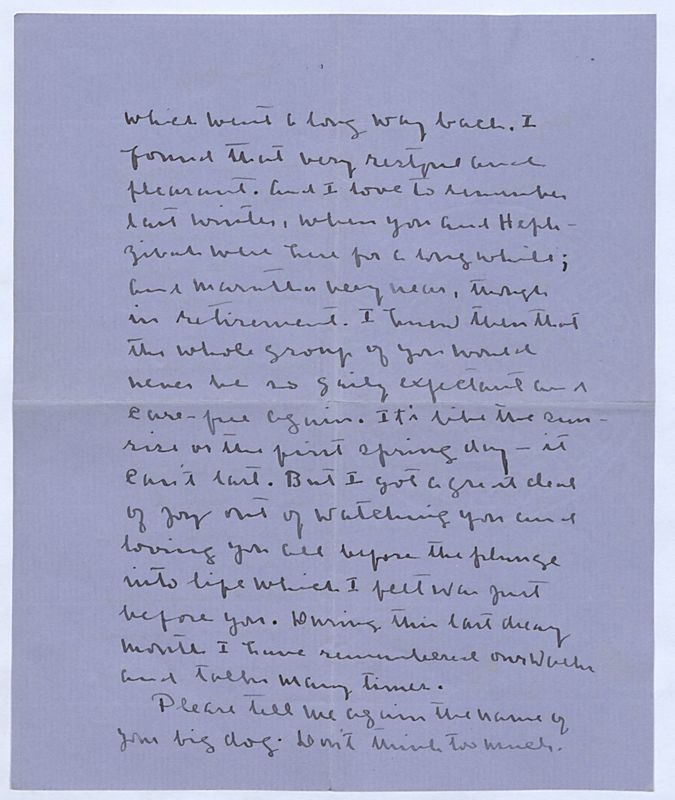 which went a long way back. I
found that very restful and
pleasant. And I love to remember
last winter, when you and Heph-
zibah were here for a long while;
and Marutha very near, though
in retirement. I knew then that
the whole group of you would
never be so gaily expectant and
care-free again. It's like the sun-
rise or the first spring day – it
can't last. But I got a great deal
of joy out of watching you and
loving you all before the plunge
into life which I felt was just
before you. During this last dreary
month I have remembered our walks
and talks many times.
Please tell me again the name of
your big dog. Don't think too much.